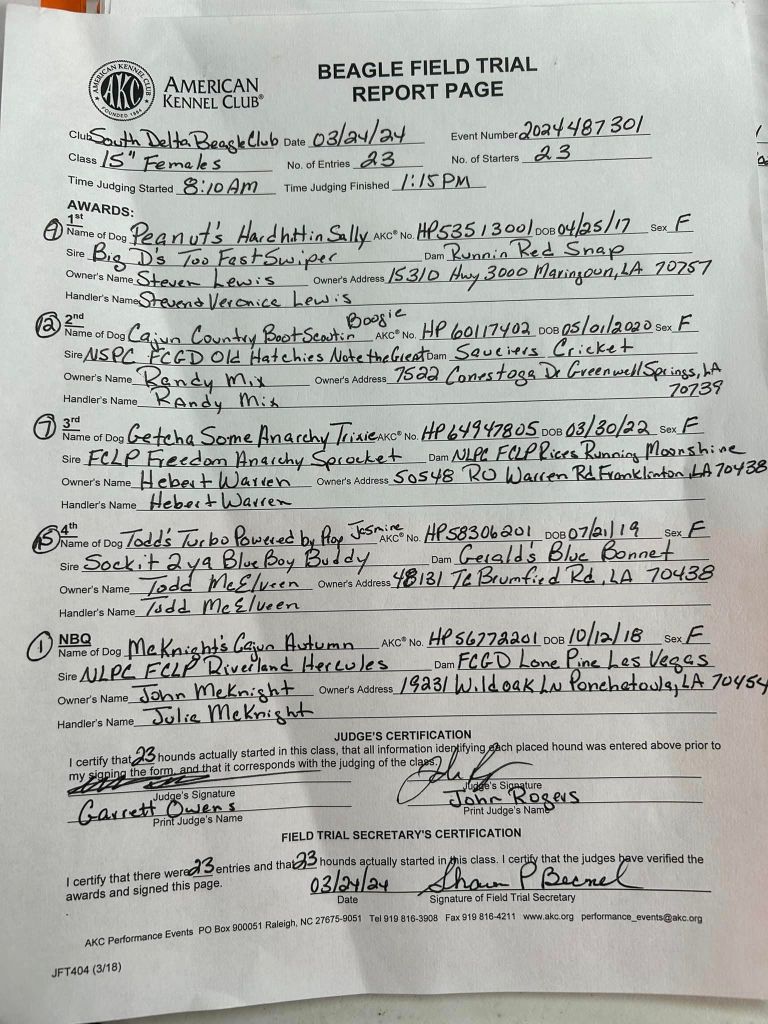 AMERICAN KENNEL CLUB
AKC
FOUNDED 1884
AMERICAN
KENNEL CLUB®
BEAGLE FIELD TRIAL
REPORT PAGE
Club South Delta Beagle Club Date 03/24/24 Event Number 2024487301
Class 15" Females No. of Entries 23 No. of Starters 23
Time Judging Started 8:10 AM Time Judging Finished 1:15 PM
AWARDS:
1st
Name of Dog Peanut's Hardhittin Sally AKC® No. HP53513001 DOB 04/25/17 Sex F
Sire Big D's Too Fast Swiper Dam Runnin Red Snap
Owner's Name Steven Lewis Owner's Address 15310 Hwy 3000 Maringoun, LA 70757
Handler's Name Steven & Veronica Lewis
12 2nd
Name of Dog Cajun Country Boot Scoutin Boogie AKC® No. HP60117402 DOB 05/01/2020 Sex F
Sire NSPC FCGD Old Hatchies Note the Great Dam Sauciers Cricket
Owner's Name Randy Mix Owner's Address 7522 Conestoga Dr Greenwell Springs, LA 70739
Handler's Name Randy Mix
7 3rd
Name of Dog Getcha Some Anarchy Trixie AKC® No. HP64947805 DOB 03/30/22 Sex F
Sire FCLP Freedom Anarchy Sprocket Dam NLPC FCLP Rices Running Moonshine
Owner's Name Hebert Warren Owner's Address 50548 RO Warren Rd Franklinton, LA 70438
Handler's Name Hebert Warren
4th
Name of Dog Todd's Turbo Powered by Jasmine AKC® No. HP58306201 DOB 07/21/19 Sex F
Sire Sockit 2 ya Blue Boy Buddy Dam Gerald's Blue Bonnet
Owner's Name Todd McElveen Owner's Address 48131 TC Brumfield Rd, LA 70438
Handler's Name Todd McElveen
1 NBQ
Name of Dog McKnight's Cajun Autumn AKC® No. HP56772201 DOB 10/12/18 Sex F
Sire NLPC FCLP Riverland Hercules Dam FCGD Lone Pine Las Vegas
Owner's Name John McKnight Owner's Address 19231 Wildoak Ln Ponchatoula, LA 70454
Handler's Name Julie McKnight
JUDGE'S CERTIFICATION
I certify that 23 hounds actually started in this class, that all information identifying each placed hound was entered above prior to
my signing the form, and that it corresponds with the judging of the class.
Judge's Signature Judge's Signature
Garrett Owens John Rogers
Print Judge's Name Print Judge's Name
FIELD TRIAL SECRETARY'S CERTIFICATION
I certify that there were 23 entries and that 23 hounds actually started in this class. I certify that the judges have verified the
awards and signed this page.
03/24/24 Shawn P Becnel
Date Signature of Field Trial Secretary
AKC Performance Events PO Box 900051 Raleigh, NC 27675-9051 Tel 919 816-3908 Fax 919 816-4211 www.akc.org performance_events@akc.org
JFT404 (3/18)